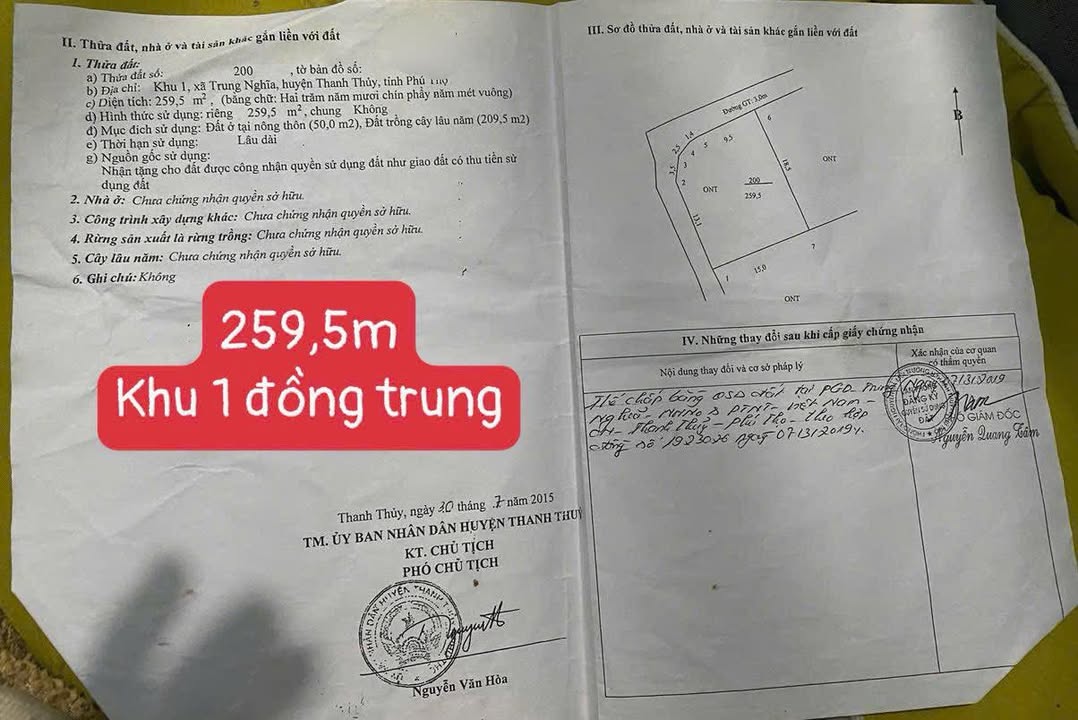 II. Thửa đất, nhà ở và tài sản khác gắn liền với đất
1. Thửa đất:
a) Thửa đất số: 200 , tờ bản đồ số:
b) Địa chỉ: Khu 1, xã Trung Nghĩa, huyện Thanh Thủy, tỉnh Phú Thọ
c) Diện tích: 259,5 m², (bằng chữ: Hai trăm năm mươi chín phẩy năm mét vuông)
d) Hình thức sử dụng: riêng 259,5 m², chung Không
đ) Mục đích sử dụng: Đất ở tại nông thôn (50,0 m2), Đất trồng cây lâu năm (209,5 m2)
e) Thời hạn sử dụng: Lâu dài
g) Nguồn gốc sử dụng:
Nhận tặng cho đất được công nhận quyền sử dụng đất như giao đất có thu tiền sử
dụng đất
2. Nhà ở: Chưa chứng nhận quyền sở hữu.
3. Công trình xây dựng khác: Chưa chứng nhận quyền sở hữu.
4. Rừng sản xuất là rừng trồng: Chưa chứng nhận quyền sở hữu.
5. Cây lâu năm: Chưa chứng nhận quyền sở hữu.
6. Ghi chú: Không
259,5m
Khu 1 đồng trung
Thanh Thủy, ngày 30 tháng 7 năm 2015
TM. ỦY BAN NHÂN DÂN HUYỆN THANH THUỶ
KT. CHỦ TỊCH
PHÓ CHỦ TỊCH
Nguyễn Văn Hòa
III. Sơ đồ thửa đất, nhà ở và tài sản khác gắn liền với đất
Đường GT: 3,0m
B
6
1,4
2,5
9,5
5
4
3
3,5
2
18,5
ONT
ONT
200
259,5
13,1
7
1
15,0
ONT
IV. Những thay đổi sau khi cấp giấy chứng nhận
Nội dung thay đổi và cơ sở pháp lý
Xác nhận của cơ quan
có thẩm quyền
Thế chấp bằng QSD đất tại PGD Trung
Nghĩa - NHNO & PTNT Việt Nam -
CN - Thanh Thuỷ - Phú Thọ - theo hợp
đồng số 1923026 ngày 07/3/2019
Ngày 07/3/2019
ĐĂNG KÝ
QUYỀN SỬ DỤNG
ĐẤT
GIÁM ĐỐC
Nguyễn Quang Tâm